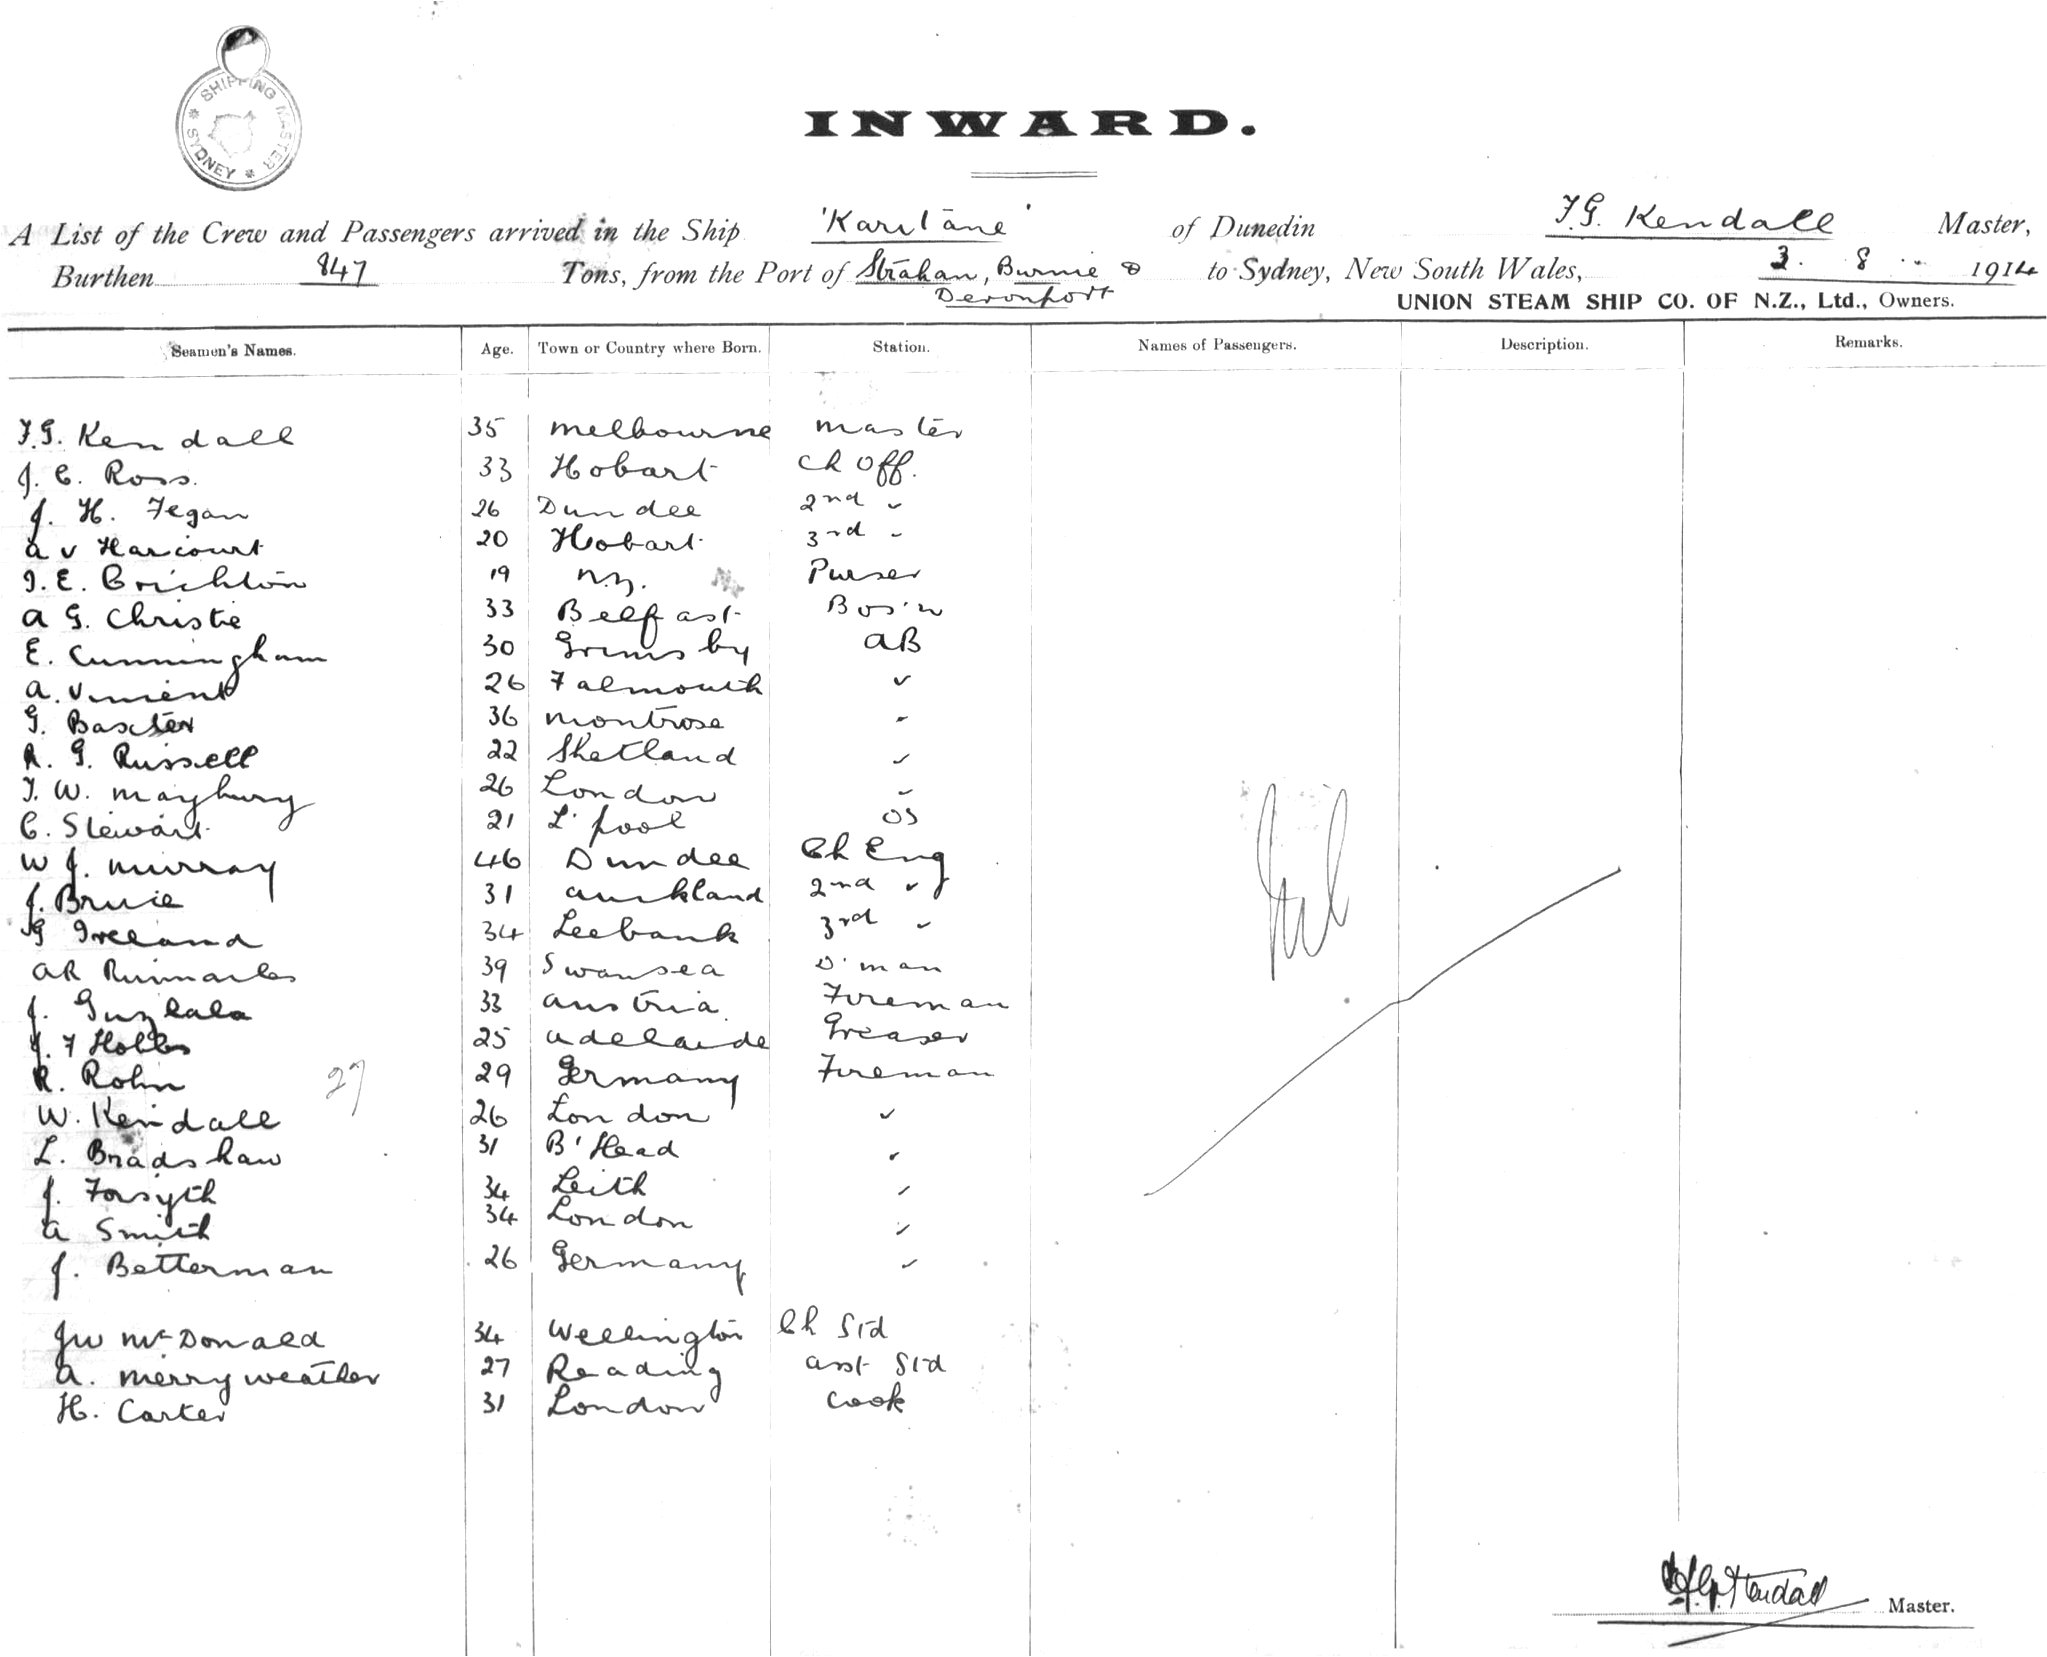 SHIPPING MASTER
* SYDNEY *
INWARD.
A List of the Crew and Passengers arrived in the Ship 'Karitane' of Dunedin F.G. Kendall Master,
Burthen 847 Tons, from the Port of Strahan, Burnie & Devonport to Sydney, New South Wales, 3. 8 .. 1914
UNION STEAM SHIP CO. OF N.Z., Ltd., Owners.
Seamen's Names. Age. Town or Country where Born. Station. Names of Passengers. Description. Remarks.
F.G. Kendall 35 Melbourne Master
J. C. Ross. 33 Hobart Ch Off.
J. H. Fegan 26 Dundee 2nd "
A V Harcourt 20 Hobart 3rd "
J. E. Crichton 19 N.Z. Purser
A G. Christie 33 Belfast Bos'n
E. Cunningham 30 Grimsby AB
A. Vinient 26 Falmouth "
G. Baxter 36 Montrose "
R. G. Russell 22 Shetland "
F. W. Mayhury 26 London "
C. Stewart 21 L'pool OS
W J. Murray 46 Dundee Ch Eng
J. Bruce 31 Auckland 2nd "
G Ireland 34 Leebank 3rd "
AR 39 Swansea D'man
J. Guzlala 33 Austria Fireman
J. F Hobbs 25 Adelaide Greaser
R. Rohn 29 Germany Fireman
27
W. Kendall 26 London "
L. Bradshaw 31 B'Head "
J. Forsyth 34 Leith "
A Smith 34 London "
J. Betterman 26 Germany "
JW McDonald 34 Wellington Ch Std
A. Merryweather 27 Reading Asst Std
H. Carter 31 London Cook
Nil
F.G. Kendall Master.